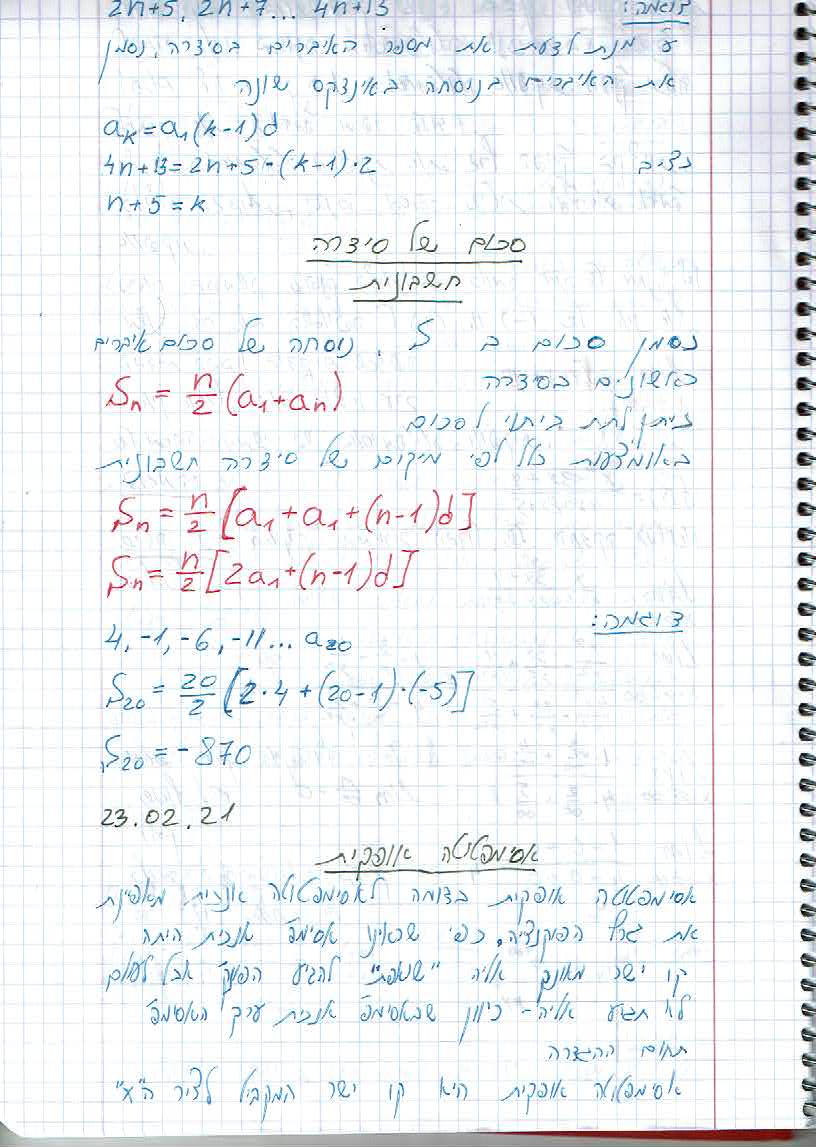 דוגמה: 2n+5, 2n+7... 4n+13
ע"מנת לדעת את מספר האיברים בסידרה, נסמן
את האיברים בנוסחה באינדקס שונה
aₖ=a₁(k-1)d
נציב 4n+13=2n+5-(k-1)·2
n+5=k
סכום של סידרה
חשבונית
נסמן סכום ב S, נוסחה של סכום איברים
ראשונים בסידרה
Sₙ = n/2 (a₁+aₙ)
ניתן לתת ביטוי לסכום
באומצעות כלל לפי מיקום של סידרה חשבונית
Sₙ = n/2 [a₁+a₁+(n-1)d]
Sₙ = n/2 [2a₁+(n-1)d]
דוגמה:
4, -1, -6, -11... a₂₀
S₂₀ = 20/2 [2·4+(20-1)·(-5)]
S₂₀ = -870
23.02.21
אסימפטוטה אופקית
אסימפטוטה אופקית בדומה לאסימפטוטה אנכית מאפינת
את גרף הפונקציה, כפי שראינו אסימפ' אנכית היתה
קו ישר מאונך אליה "שואפת" להגיע הפונק' אבל לעולם
לא תגיע אליה - כיוון שבאסימפ' אנכית ערך האסימפ'
תחום ההגדרה
אסימפטוטה אופקית היא קו ישר המקביל לציר ה"x"